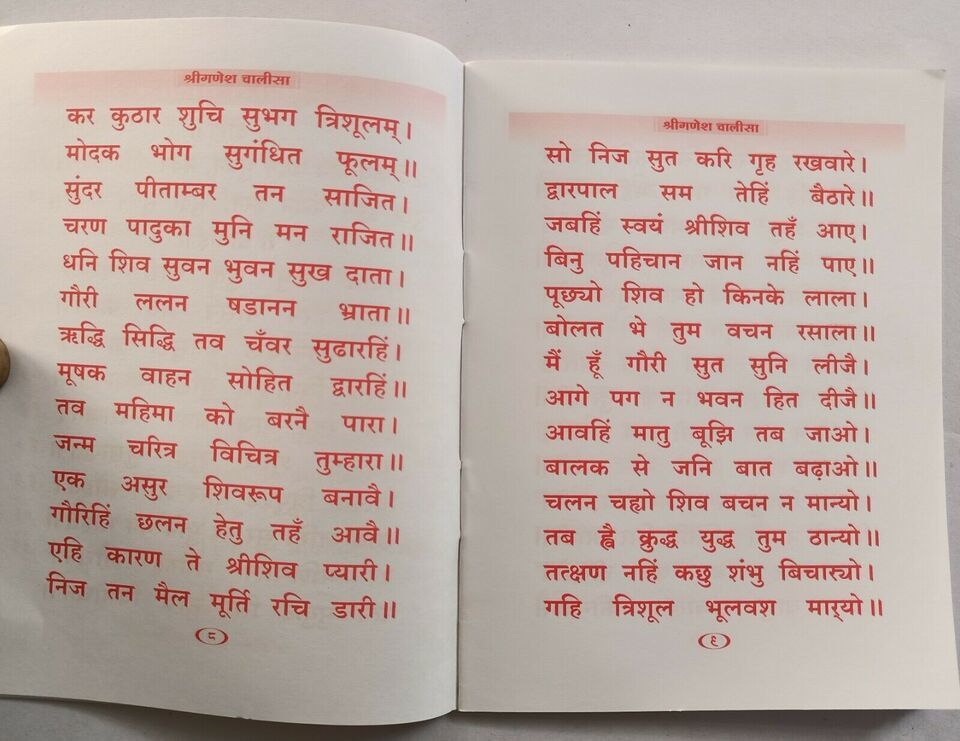 श्रीगणेश चालीसा
कर कुठार शुचि सुभग त्रिशूलम्।
मोदक भोग सुगंधित फूलम्॥
सुंदर पीताम्बर तन साजित।
चरण पादुका मुनि मन राजित॥
धनि शिव सुवन भुवन सुख दाता।
गौरी ललन षडानन भ्राता॥
ऋद्धि सिद्धि तव चँवर सुढारहिं।
मूषक वाहन सोहित द्वारहिं॥
तव महिमा को बरनै पारा।
जन्म चरित्र विचित्र तुम्हारा॥
एक असुर शिवरूप बनावै।
गौरिहिं छलन हेतु तहँ आवै॥
एहि कारण ते श्रीशिव प्यारी।
निज तन मैल मूर्ति रचि डारी॥
८
श्रीगणेश चालीसा
सो निज सुत करि गृह रखवारे।
द्वारपाल सम तेहिं बैठारे॥
जबहिं स्वयं श्रीशिव तहँ आए।
बिनु पहिचान जान नहिं पाए॥
पूछ्यो शिव हो किनके लाला।
बोलत भे तुम वचन रसाला॥
मैं हूँ गौरी सुत सुनि लीजै।
आगे पग न भवन हित दीजै॥
आवहिं मातु बूझि तब जाओ।
बालक से जनि बात बढ़ाओ॥
चलन चह्यो शिव बचन न मान्यो।
तब ह्वै क्रुद्ध युद्ध तुम ठान्यो॥
तत्क्षण नहिं कछु शंभु बिचार्‍यो।
गहि त्रिशूल भूलवश मार्‍यो॥
९